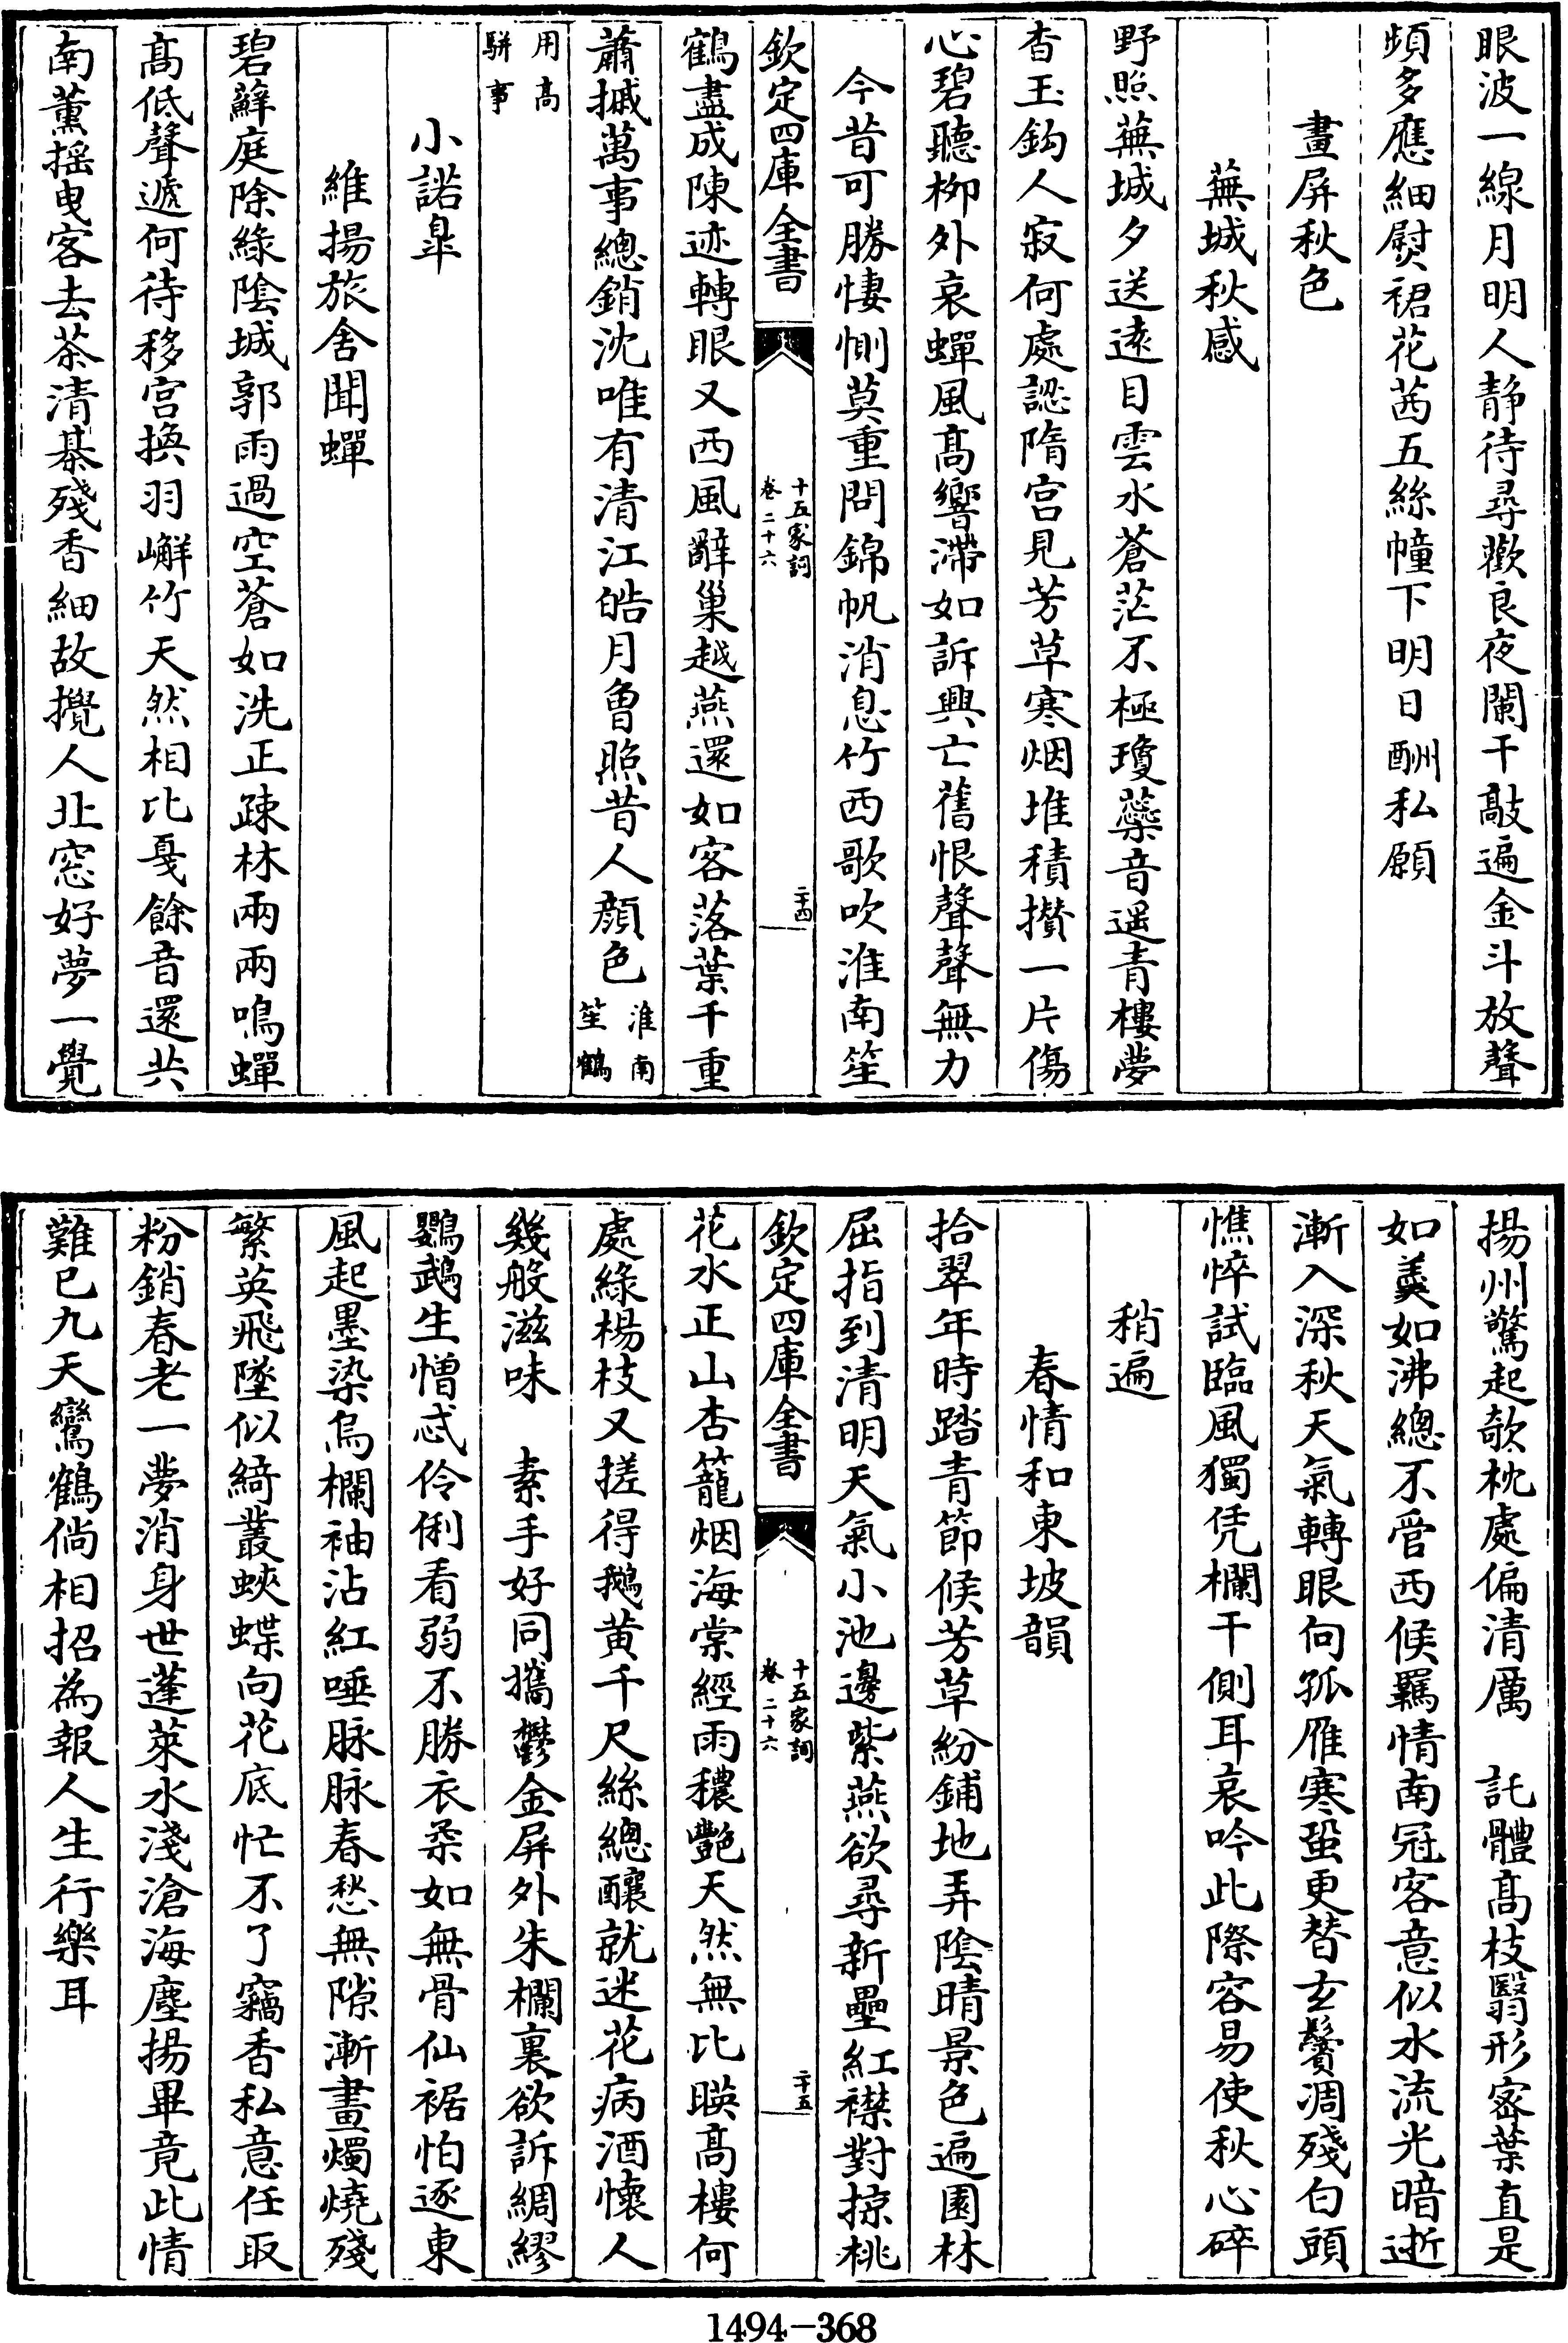 眼波一線月明人静待尋歡良夜闌干敲遍金斗放聲
頻多應細熨裙花茜五絲幢下明日酬私願
畫屏秋色
蕪城秋感
野照蕪城夕送遠目雲水蒼茫不極瓊蘂音遥青樓夢
杳玉鈎人寂何處認隋宫見芳草寒烟堆積攅一片傷
心碧聽栁外哀蟬風髙響滯如訴興亡舊恨聲聲無力
今昔可勝悽惻莫重問錦帆消息竹西歌吹淮南笙
欽定四庫全書
十五家詞
卷二十六
二十四
鶴盡成陳迹轉眼又西風辭巢越燕還如客落葉千重
蕭摵萬事總銷沈唯有清江皓月曾照昔人顔色淮南笙鶴
用高駢事
小諾臯
維揚旅舍聞蟬
碧蘚庭除緑陰城郭雨過空蒼如洗正疎林兩兩鳴蟬
髙低聲遞何待移宫換羽嶰竹天然相比戛餘音還共
南薰摇曳客去茶清棊殘香細故攪人北窓好夢一覺
揚州驚起欹枕處偏清厲　託體髙枝翳形宻葉直是
如羮如沸總不管西候羈情南冠客意似水流光暗逝
漸入深秋天氣轉眼向孤雁寒蛩更替玄鬢凋殘白頭
憔悴試臨風獨凭欄干側耳哀吟此際容易使秋心碎
稍遍
春情和東坡韻
拾翠年時踏青節候芳草紛鋪地弄陰晴景色遍園林
屈指到清明天氣小池邊紫燕欲尋新壘紅襟對掠桃
欽定四庫全書
十五家詞
卷二十六
二十五
花水正山杏籠烟海棠經雨穠艷天然無比暎髙樓何
處緑楊枝又搓得鵝黄千尺絲總釀就迷花病酒懷人
幾般滋味　素手好同攜鬱金屏外朱欄裏欲訴綢繆
鸚鵡生憎忒伶俐看弱不勝衣柔如無骨仙裾怕逐東
風起墨染烏欄袖沾紅唾脉脉春愁無隙漸畫燭燒殘
繁英飛墜似綺叢蛺蝶向花底忙不了竊香私意任取
粉銷春老一夢消身世蓬萊水淺滄海塵揚畢竟此情
難已九天鸞鶴倘相招為報人生行樂耳
1494-368